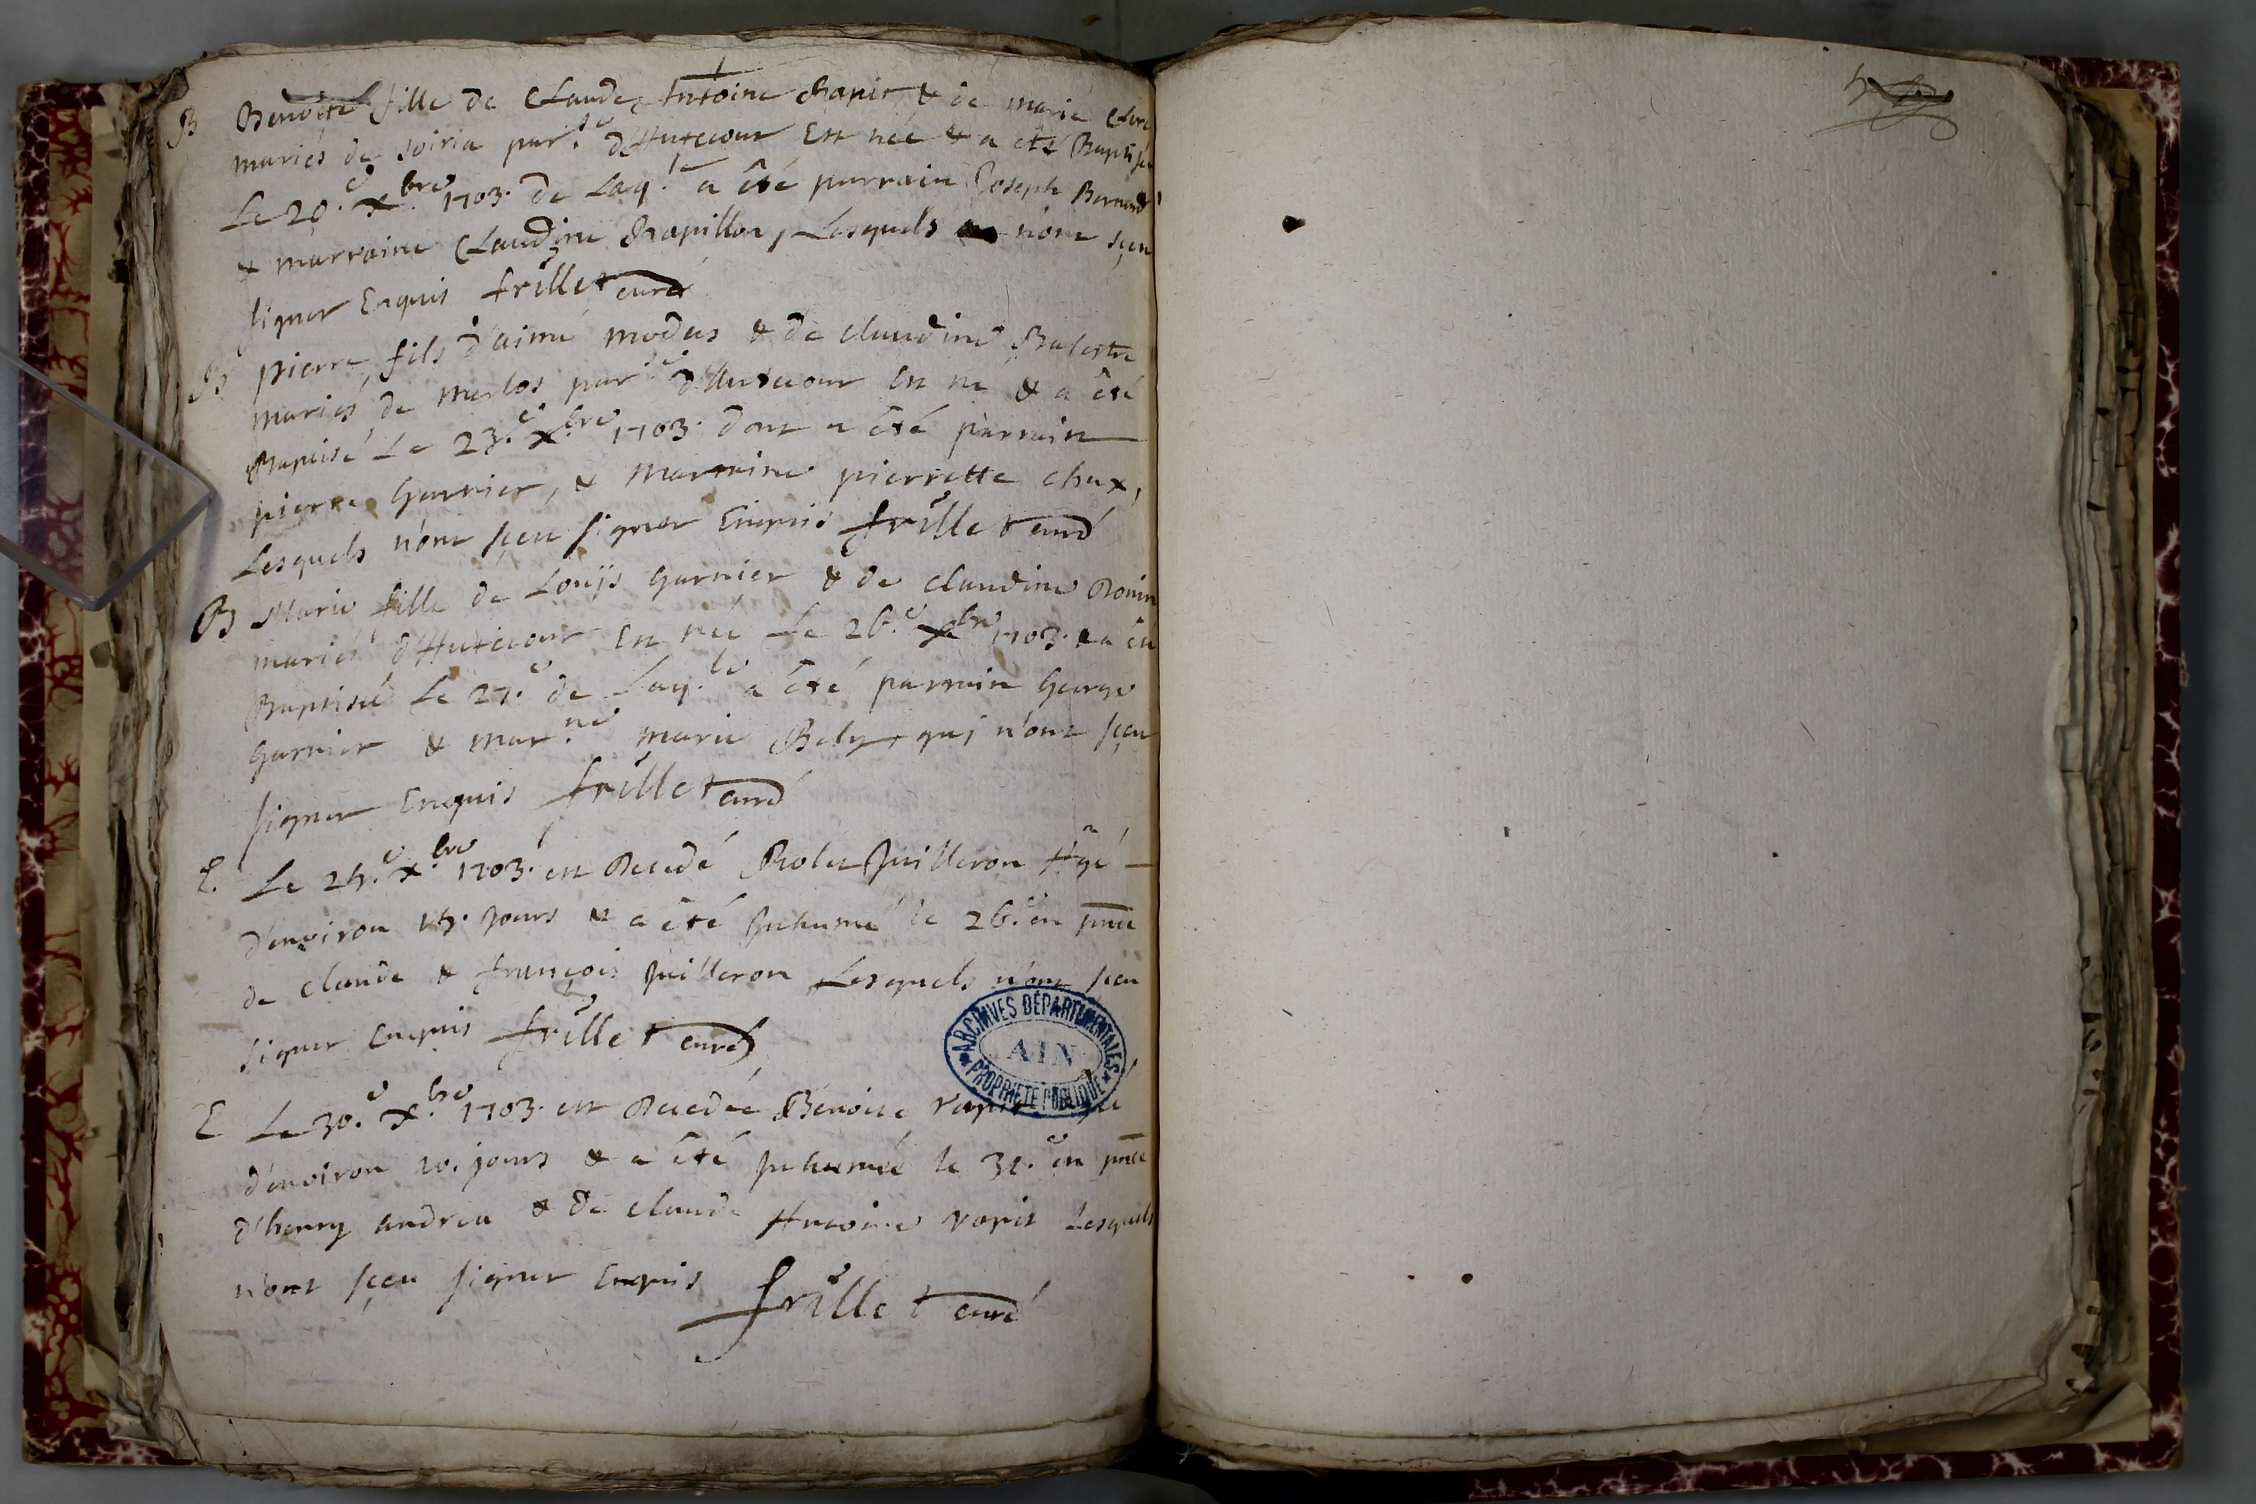 B Benoite fille de Claude Antoine Rapit & de marie
mariés de soiria par.se d'Hutecour Est née & a été Baptisée
Le 20.e x.bre 1703. de Laq.le a été parrain Joseph Bernard
& marraine Claudine Rapillon, Lesquels n'ont sçeu
signer Enquis frillet curé
B pierre fils d'aimé modas & de claudine Balestre
mariés de merlos par.se d'Hutecour est né & a été
Baptisé Le 23.e x.bre 1703. dont a été parrain
pierre Garnier, & Marraine pierrette chux,
Lesquels n'ont sçeu signer Enquis frillet curé
B Marie fille de Louijs Garnier & de claudine Ronin
mariés d'Hutecour Est née Le 26.e x.bre 1703. & a été
Baptisée Le 27.e de Laq.le a été parrain George
Garnier & mar.ne marie Bely, quj n'ont sçeu
signer Enquis frillet curé
E. Le 25.e x.bre 1703. est Decedé Rolet Juilleron Agé
d'environ 15. jours & a été Inhumé le 26.e en pnce
de claude & françois Juilleron Lesquels n'ont sçeu
signer Enquis frillet curé
E Le 30.e x.bre 1703. est Decedée Benoite rapit
d'environ 10. jours & a été Inhumée le 31.e en pnce
d'henry andrea & de claude Antoine rapit Lesquels
n'ont sçeu signer Enquis frillet curé
ARCHIVES DÉPARTEMENTALES
AIN
PROPRIÉTÉ PUBLIQUE